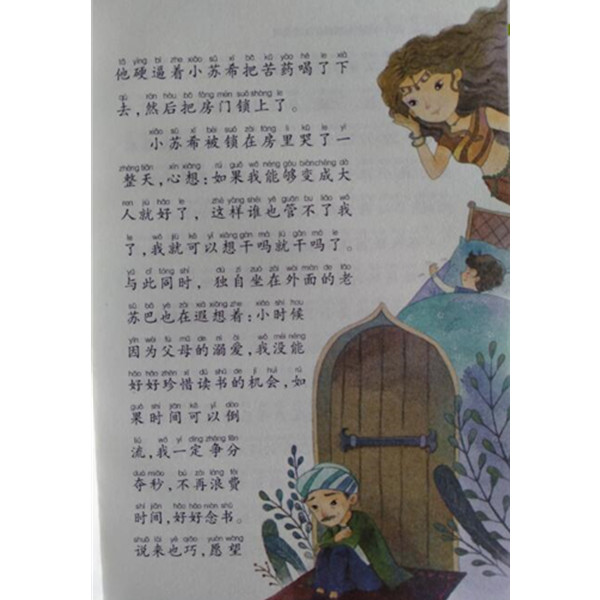 tā yìng bī zhe xiǎo sū xī bǎ kǔ yào hē le xià
他硬逼着小苏希把苦药喝了下
qù rán hòu bǎ fáng mén suǒ shàng le
去,然后把房门锁上了。
xiǎo sū xī bèi suǒ zài fáng lǐ kū le yì
小苏希被锁在房里哭了一
zhěng tiān xīn xiǎng rú guǒ wǒ néng gòu biàn chéng dà
整天,心想:如果我能够变成大
rén jiù hǎo le zhè yàng shéi yě guǎn bu liǎo wǒ
人就好了，这样谁也管不了我
le wǒ jiù kě yǐ xiǎng gàn má jiù gàn má le
了,我就可以想干吗就干吗了。
yǔ cǐ tóng shí dú zì zuò zài wài miàn de lǎo
与此同时，独自坐在外面的老
sū bā yě zài xiá xiǎng zhe xiǎo shí hou
苏巴也在遐想着:小时候
yīn wèi fù mǔ de nì ài wǒ méi néng
因为父母的溺爱,我没能
hǎo hǎo zhēn xī dú shū de jī huì rú
好好珍惜读书的机会,如
guǒ shí jiān kě yǐ dào
果时间可以倒
liú wǒ yí dìng zhēng fēn
流,我一定争分
duó miǎo bú zài làng fèi
夺秒,不再浪费
shí jiān hǎo hǎo niàn shū
时间,好好念书。
shuō lái yě qiǎo yuàn wàng
说来也巧,愿望